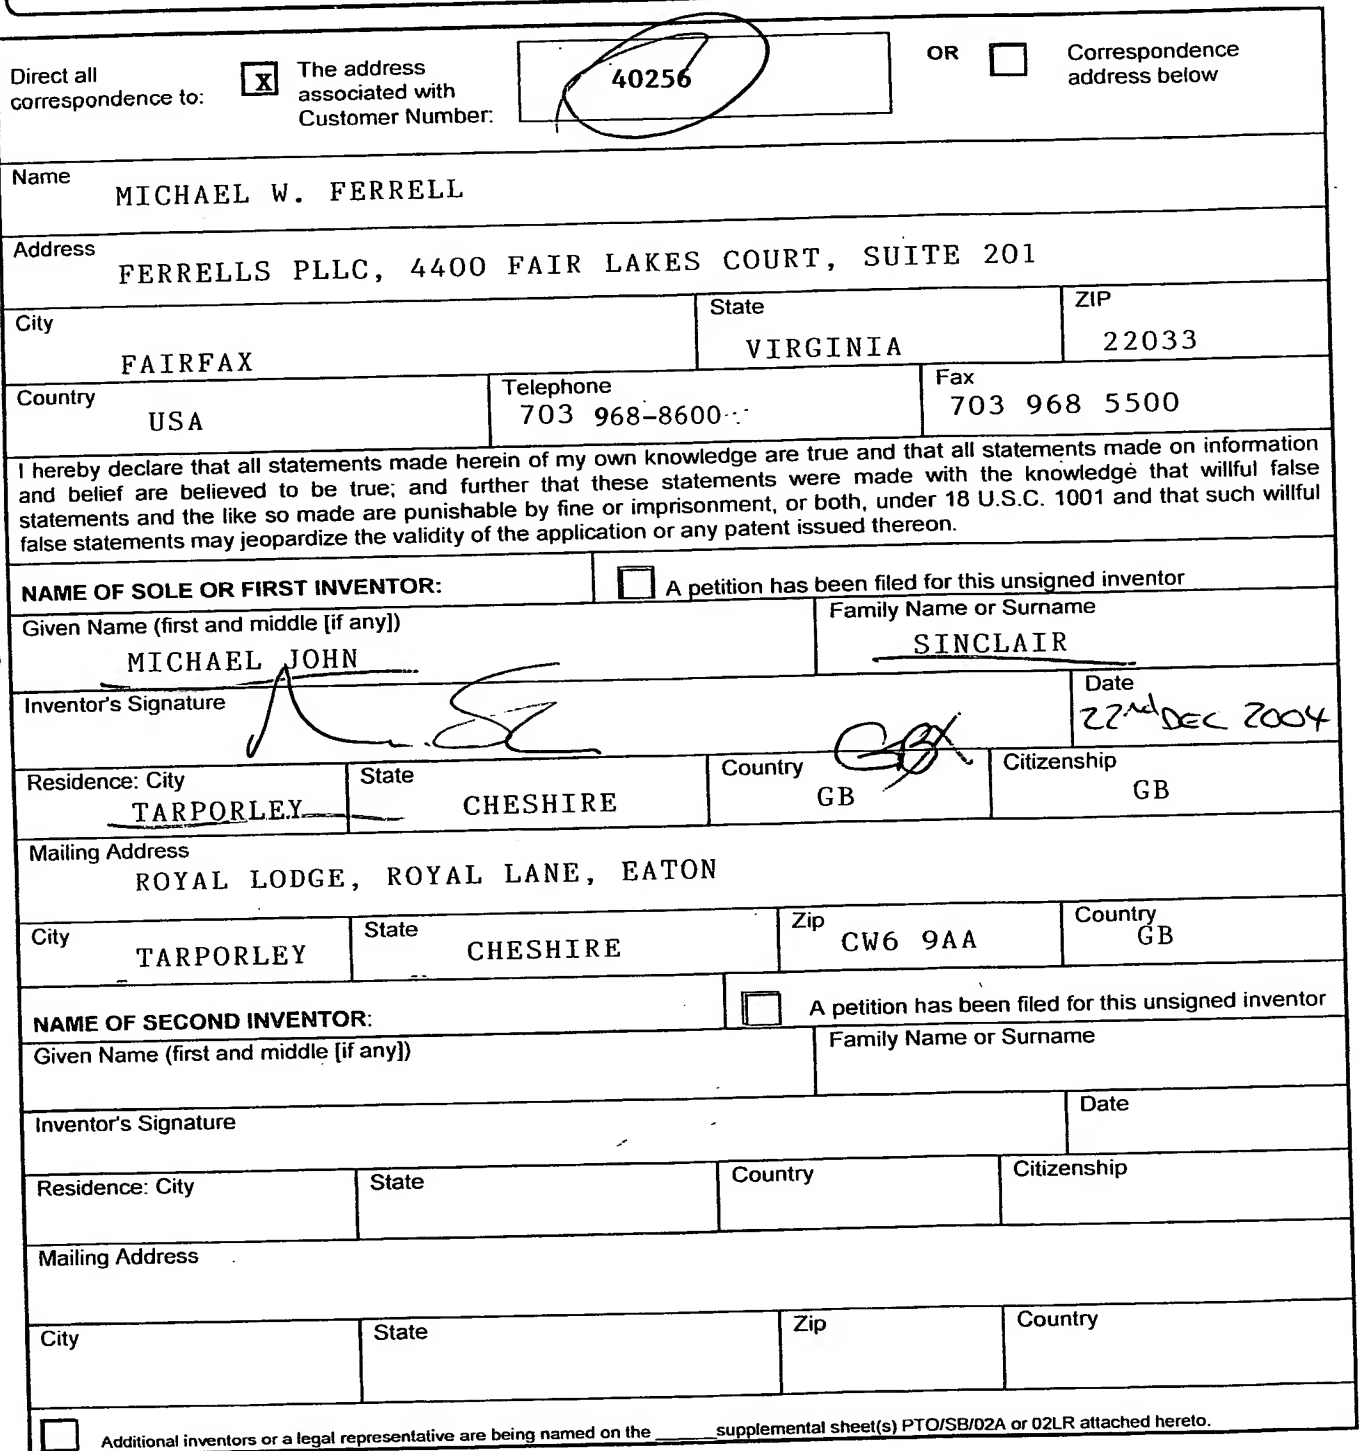 Direct all correspondence to:
X
The address associated with Customer Number:
40256
OR
Correspondence address below
Name
MICHAEL W. FERRELL
Address
FERRELLS PLLC, 4400 FAIR LAKES COURT, SUITE 201
City
FAIRFAX
State
VIRGINIA
ZIP
22033
Country
USA
Telephone
703 968-8600
Fax
703 968 5500
I hereby declare that all statements made herein of my own knowledge are true and that all statements made on information
and belief are believed to be true; and further that these statements were made with the knowledge that willful false
statements and the like so made are punishable by fine or imprisonment, or both, under 18 U.S.C. 1001 and that such willful
false statements may jeopardize the validity of the application or any patent issued thereon.
NAME OF SOLE OR FIRST INVENTOR:
A petition has been filed for this unsigned inventor
Given Name (first and middle [if any])
MICHAEL JOHN
Family Name or Surname
SINCLAIR
Inventor's Signature
Date
22nd DEC 2004
Residence: City
TARPORLEY
State
CHESHIRE
Country
GBX
GB
Citizenship
GB
Mailing Address
ROYAL LODGE, ROYAL LANE, EATON
City
TARPORLEY
State
CHESHIRE
Zip
CW6 9AA
Country
GB
NAME OF SECOND INVENTOR:
A petition has been filed for this unsigned inventor
Given Name (first and middle [if any])
Family Name or Surname
Inventor's Signature
Date
Residence: City
State
Country
Citizenship
Mailing Address
City
State
Zip
Country
Additional inventors or a legal representative are being named on the ______supplemental sheet(s) PTO/SB/02A or 02LR attached hereto.